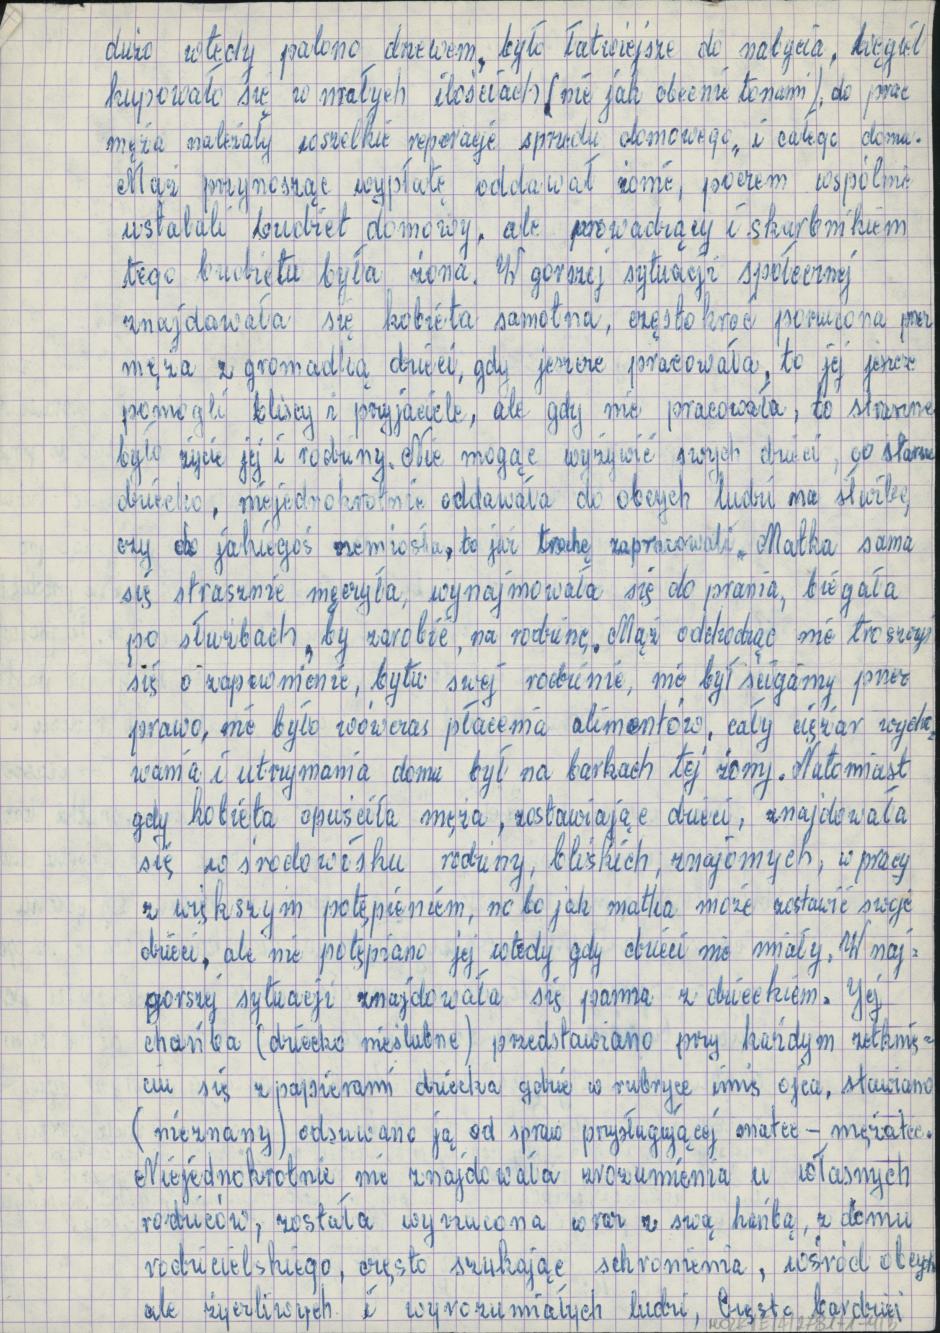 dużo wtedy palono drzewem, było łatwiejsze do nabycia, węgiel
kupowało się w małych ilościach (nie jak obecnie tonami), do prac
męża należały wszelkie reperacje sprzętu domowego, i całego domu.
Mąż przynosząc wypłatę oddawał żonie, poczem wspólnie
ustalali budżet domowy, ale prowadzący i skarbnikiem
tego budżetu była żona. W gorszej sytuacji społecznej
znajdawała się kobieta samotna, częstokroć porzucona przez
męża z gromadką dzieci, gdy jeszcze pracowała, to jej jeszcze
pomogli bliscy i przyjaciele, ale gdy nie pracowała, to straszne
było życie jej i rodziny. Nie mogąc wyżywić swych dzieci, co starsze
dziecko, niejednokrotnie oddawała do obcych ludzi na służbę,
czy do jakiegoś rzemiosła, to już trochę zapracowali. Matka sama
się strasznie męczyła, wynajmowała się do prania, biegała
po służbach, by zarobić, na rodzinę. Mąż odchodząc nie troszczył
się o zapewnienie, bytu swej rodzinie, nie był ścigany przez
prawo, nie było wówczas płacenia alimentów, cały ciężar wycho,
wania i utrzymania domu był na barkach tej żony. Natomiast
gdy kobieta opuściła męża, zostawiając dzieci, znajdowała
się w środowisku rodziny, bliskich, znajomych, w pracy
z większym potępieniem, no bo jak matka może zostawić swoje
dzieci, ale nie potępiano jej wtedy gdy dzieci nie miały. W naj-
gorszej sytuacji znajdowała się panna z dzieckiem. Jej
chańba (dziecko nieślubne) przedstawiano przy każdym zetknię-
ciu się z papierami dziecka gdzie w rubryce imię ojca, stawiano
(nieznany) odsuwano ją od spraw przysługującej matce - mężatce.
Niejednokrotnie nie znajdowała zrozumienia u własnych
rodziców, została wyrzucona wraz z swą hańbą, z domu
rodzicielskiego, często szukając schronienia, wśród obcych
ale życzliwych i wyrozumiałych ludzi, Często bardziej